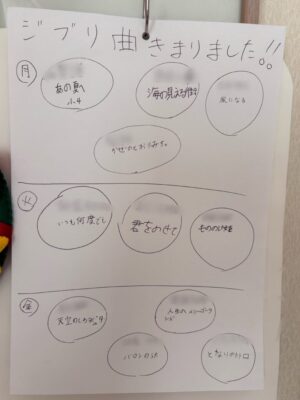 ジブリ曲きまりました!!
月
あの夏へ
海の見える街
風になる
かぜのとおりみち
火
いつも何度でも
君をのせて
もののけ姫
金
天空の
人生のメリーゴーラ
ンド
となりのトトロ